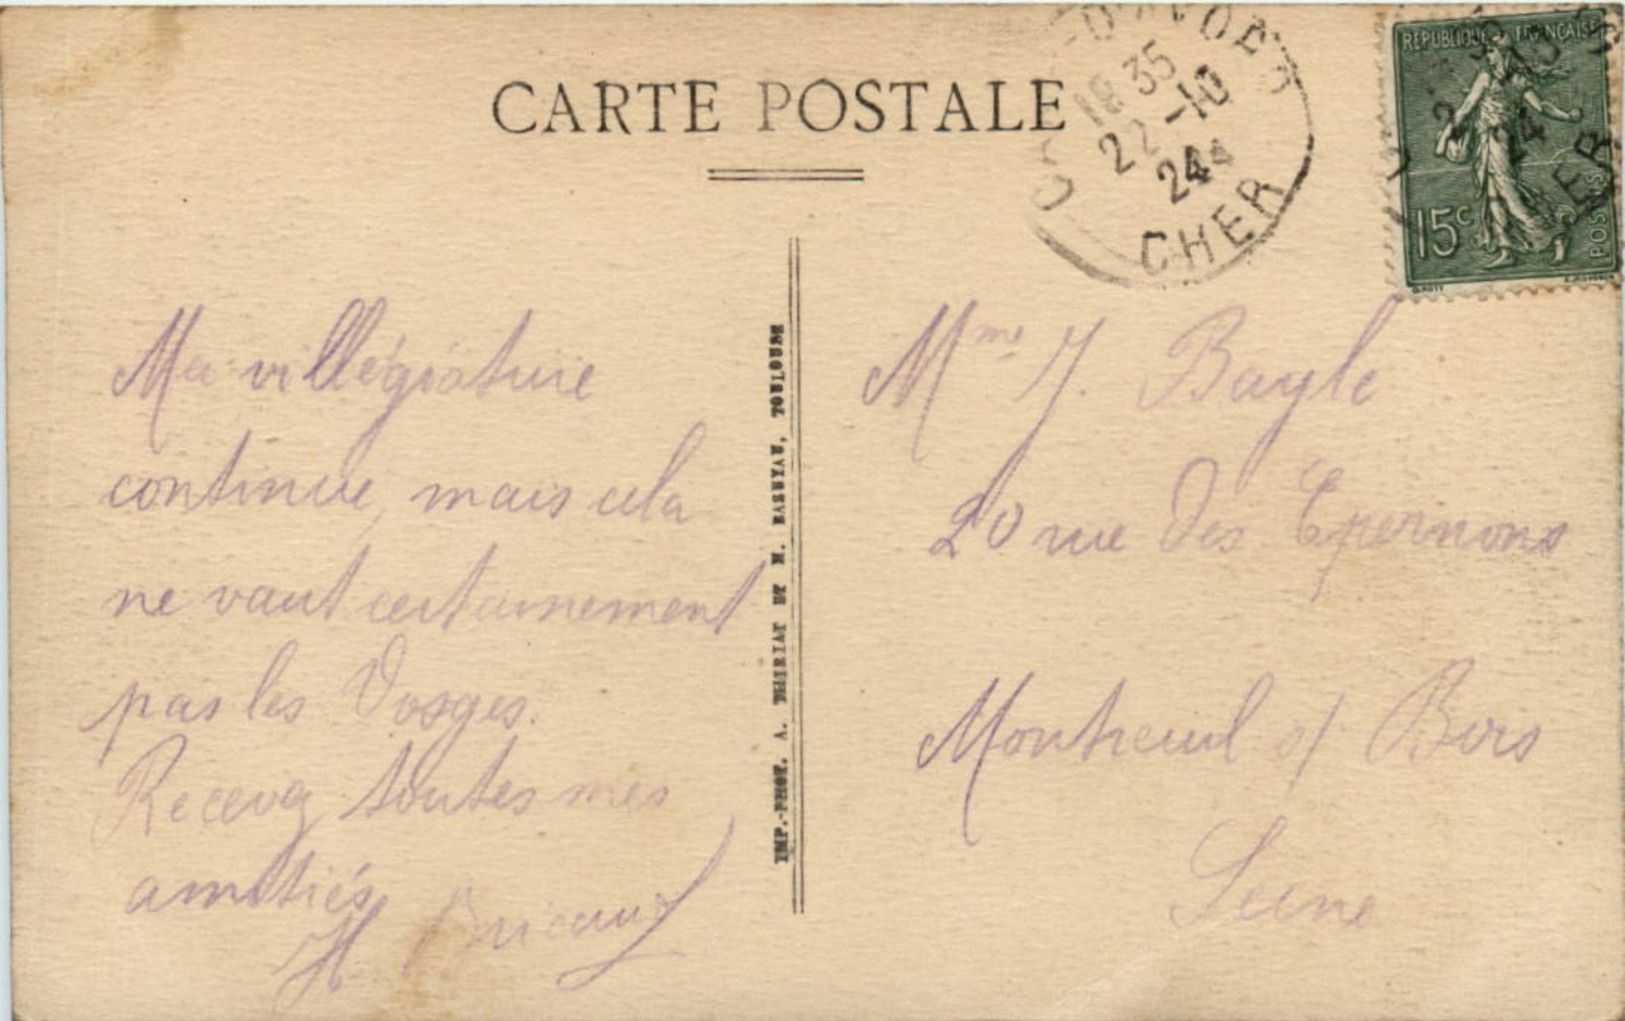 CARTE POSTALE
18 35
22 -10
24
CHER
REPUBLIQUE FRANCAISE
15c
POSTES
Ma villégiature
continue, mais cela
ne vaut certainement
pas les Vosges.
Recevez toutes mes
amitiés
H.
IMP.-PHOT. A. THIRIAT ET M. BASUYAU, TOULOUSE
Mme J. Bayle
20 rue des Epernons
Montreuil s/ Bois
Seine